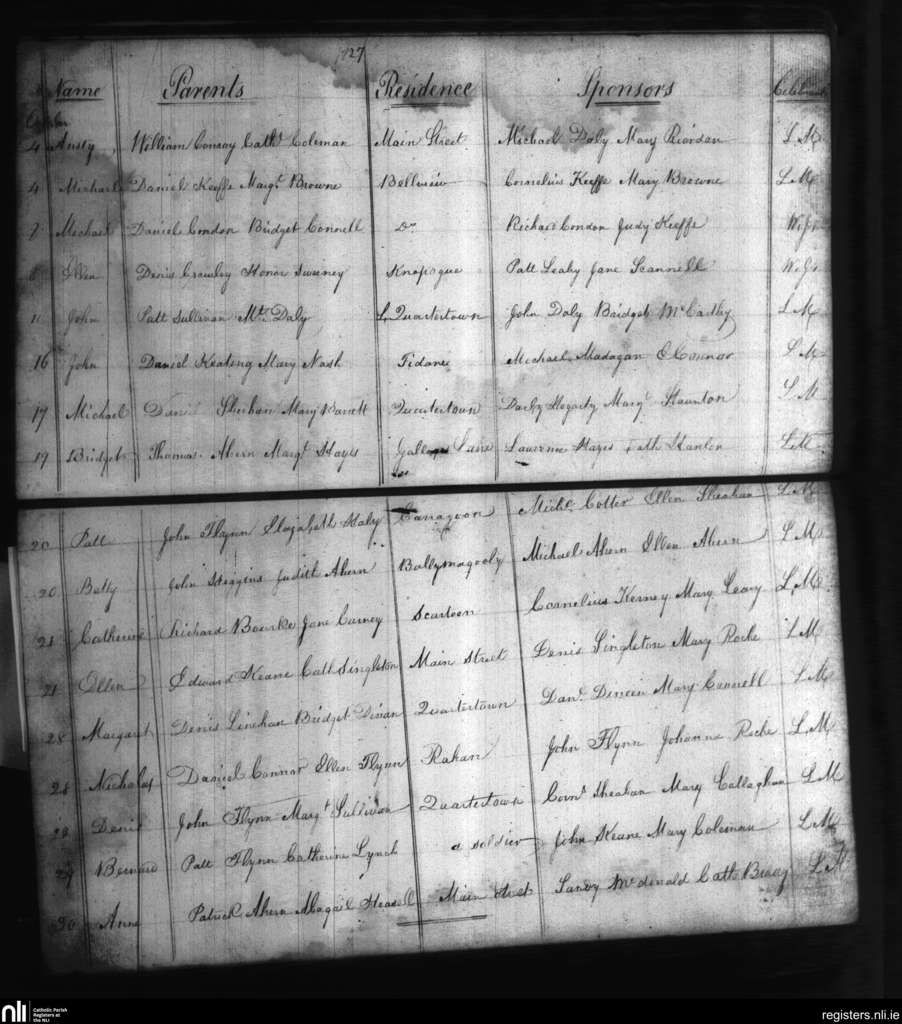 1827
Name Parents Residence Sponsors Celebrant
October
4 Ansty William Conroy Cathe Coleman Main Street Michael Daly Mary Riordan L M
4 Michael Daniel Keeffe Margt Browne Bellview Cornelius Keeffe Mary Browne L M
7 Michael Daniel Condon Bridget Connell Do Richard Condon Judy Keeffe
8 Ellen Denis Crowley Honor Sweeney Knopogue Patt Leahy Jane Scannell
11 John Patt Sullivan Mt Daly Quartertown John Daly Bridget McCarthy L M
16 John Daniel Keating Mary Nash Michael Madagan O Connor L M
17 Michael Sheehan Mary Barrett Quartertown Darby Hegarty Margt Staunton L M
19 Bridget Thomas Ahern Margt Hayes Lane Lawrence Hayes Cath Hanlon L M
20 Patt John Flynn Elizabeth Haly Carragoon Michl Cotter Ellen Sheahan L M
20 Batty John Higgins Judith Ahern Ballymagooly Michael Ahern Ellen Ahern L M
21 Catherine Richard Bourke Jane Carney Scarteen Cornelius Kerney Mary Leary L M
21 Ellen Edward Keane Cath Singleton Main Street Denis Singleton Mary Roche L M
28 Margaret Denis Linehan Bridget Dinan Quartertown Danl Dineen Mary Connell L M
28 Nicholas Daniel Connor Ellen Flynn Rahan John Flynn Johanna Roche L M
28 Denis John Flynn Margt Sullivan Quartertown Corns Sheahan Mary Callaghan L M
29 Bernard Patt Flynn Catherine Lynch a soldier John Keane Mary Coleman L M
30 Anne Patrick Ahern Abagail Main Street Sandy Mc donald Cath Brady L M
nli Catholic Parish
Registers at
the NLI
registers.nli.ie